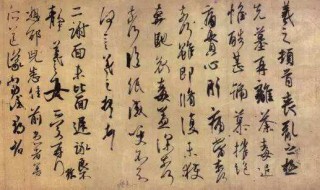 羲之頓首喪亂之極
先墓再離荼毒追
惟酷甚號慕摧絕
痛貫心肝痛當奈何
奈何雖即脩復未獲
奔馳哀毒益深奈何
奈何臨紙感哽不知
何言羲之頓首頓首
二謝面未比面遲詠良不
靜羲之女愛再拜
想邵兒悉佳前患者善
所送議當試尋省